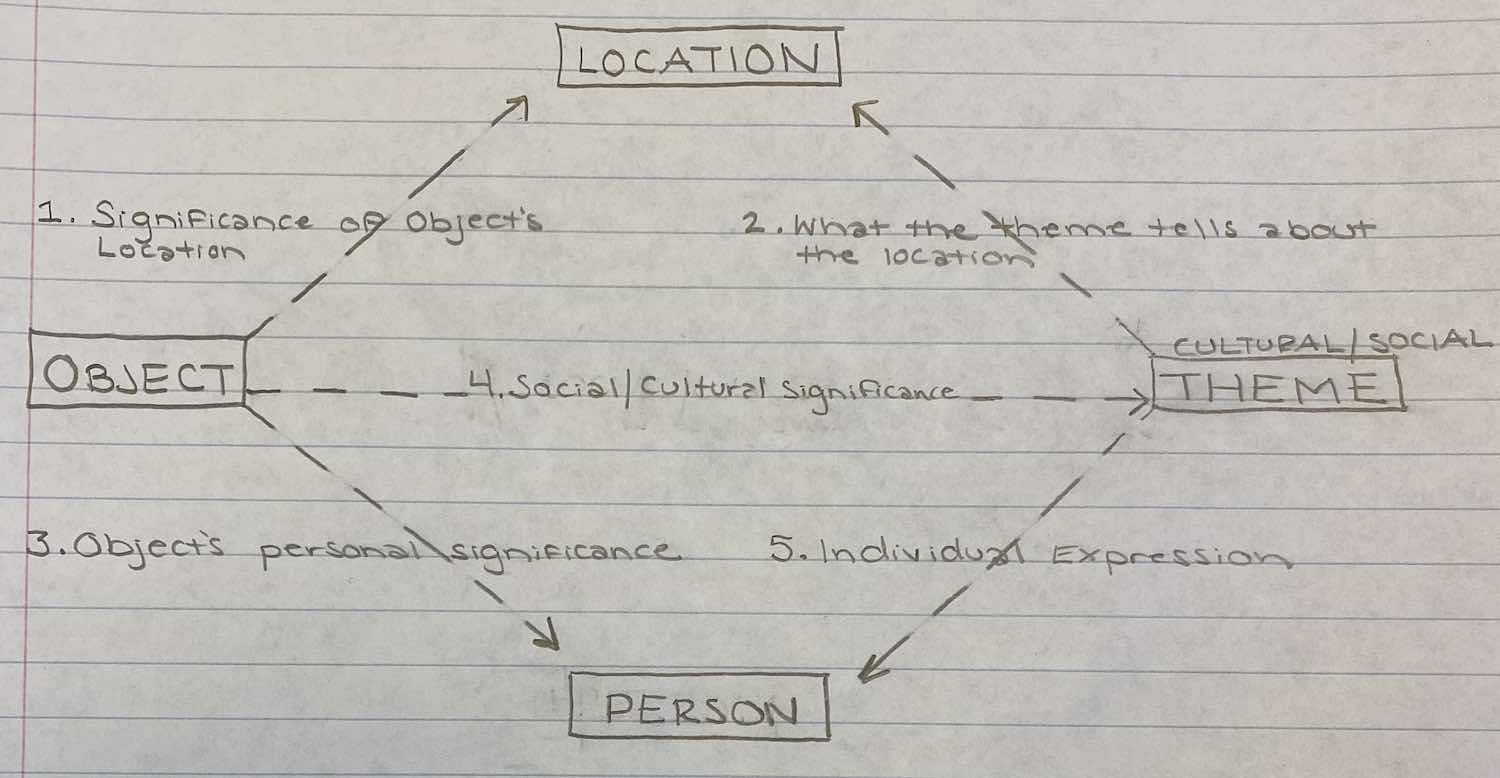 LOCATION
1. Significance of Object's
Location
2. What the theme tells about
the location
CULTURAL/SOCIAL
OBJECT
4. Social/Cultural Significance
THEME
3. Object's personal significance
5. Individual Expression
PERSON